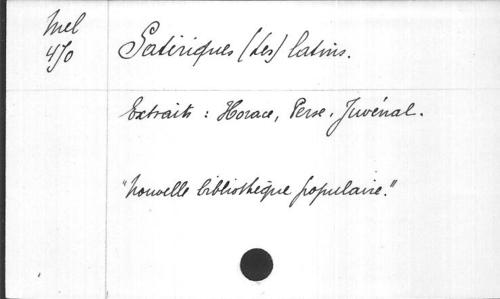 Mel
470
Satiriques (Les) latins.
Extraits : Horace, Perse, Juvénal.
"Nouvelle bibliothèque populaire."